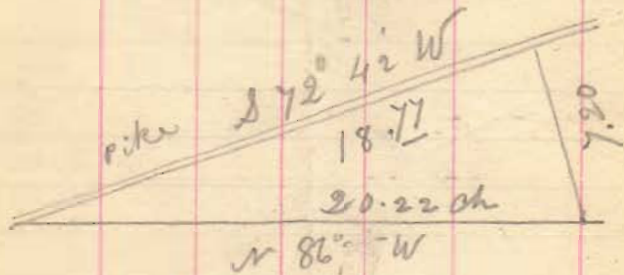 pike S 72° 42' W
18.77
7.80
20.22 ch
N 86° - W